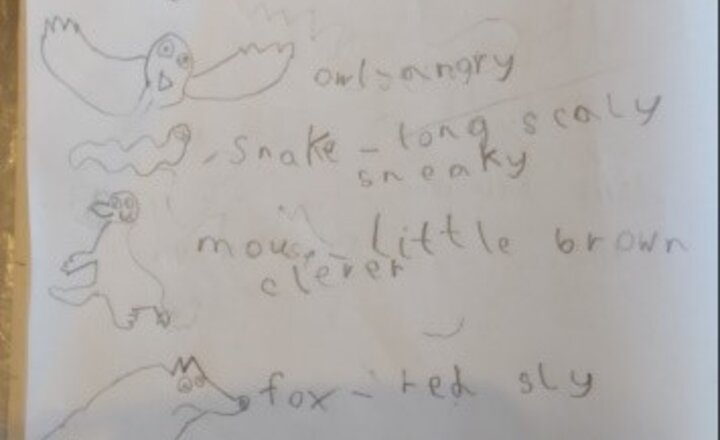 owl-angry
snake - long scaly
sneaky
mouse - little brown
clever
fox - red sly